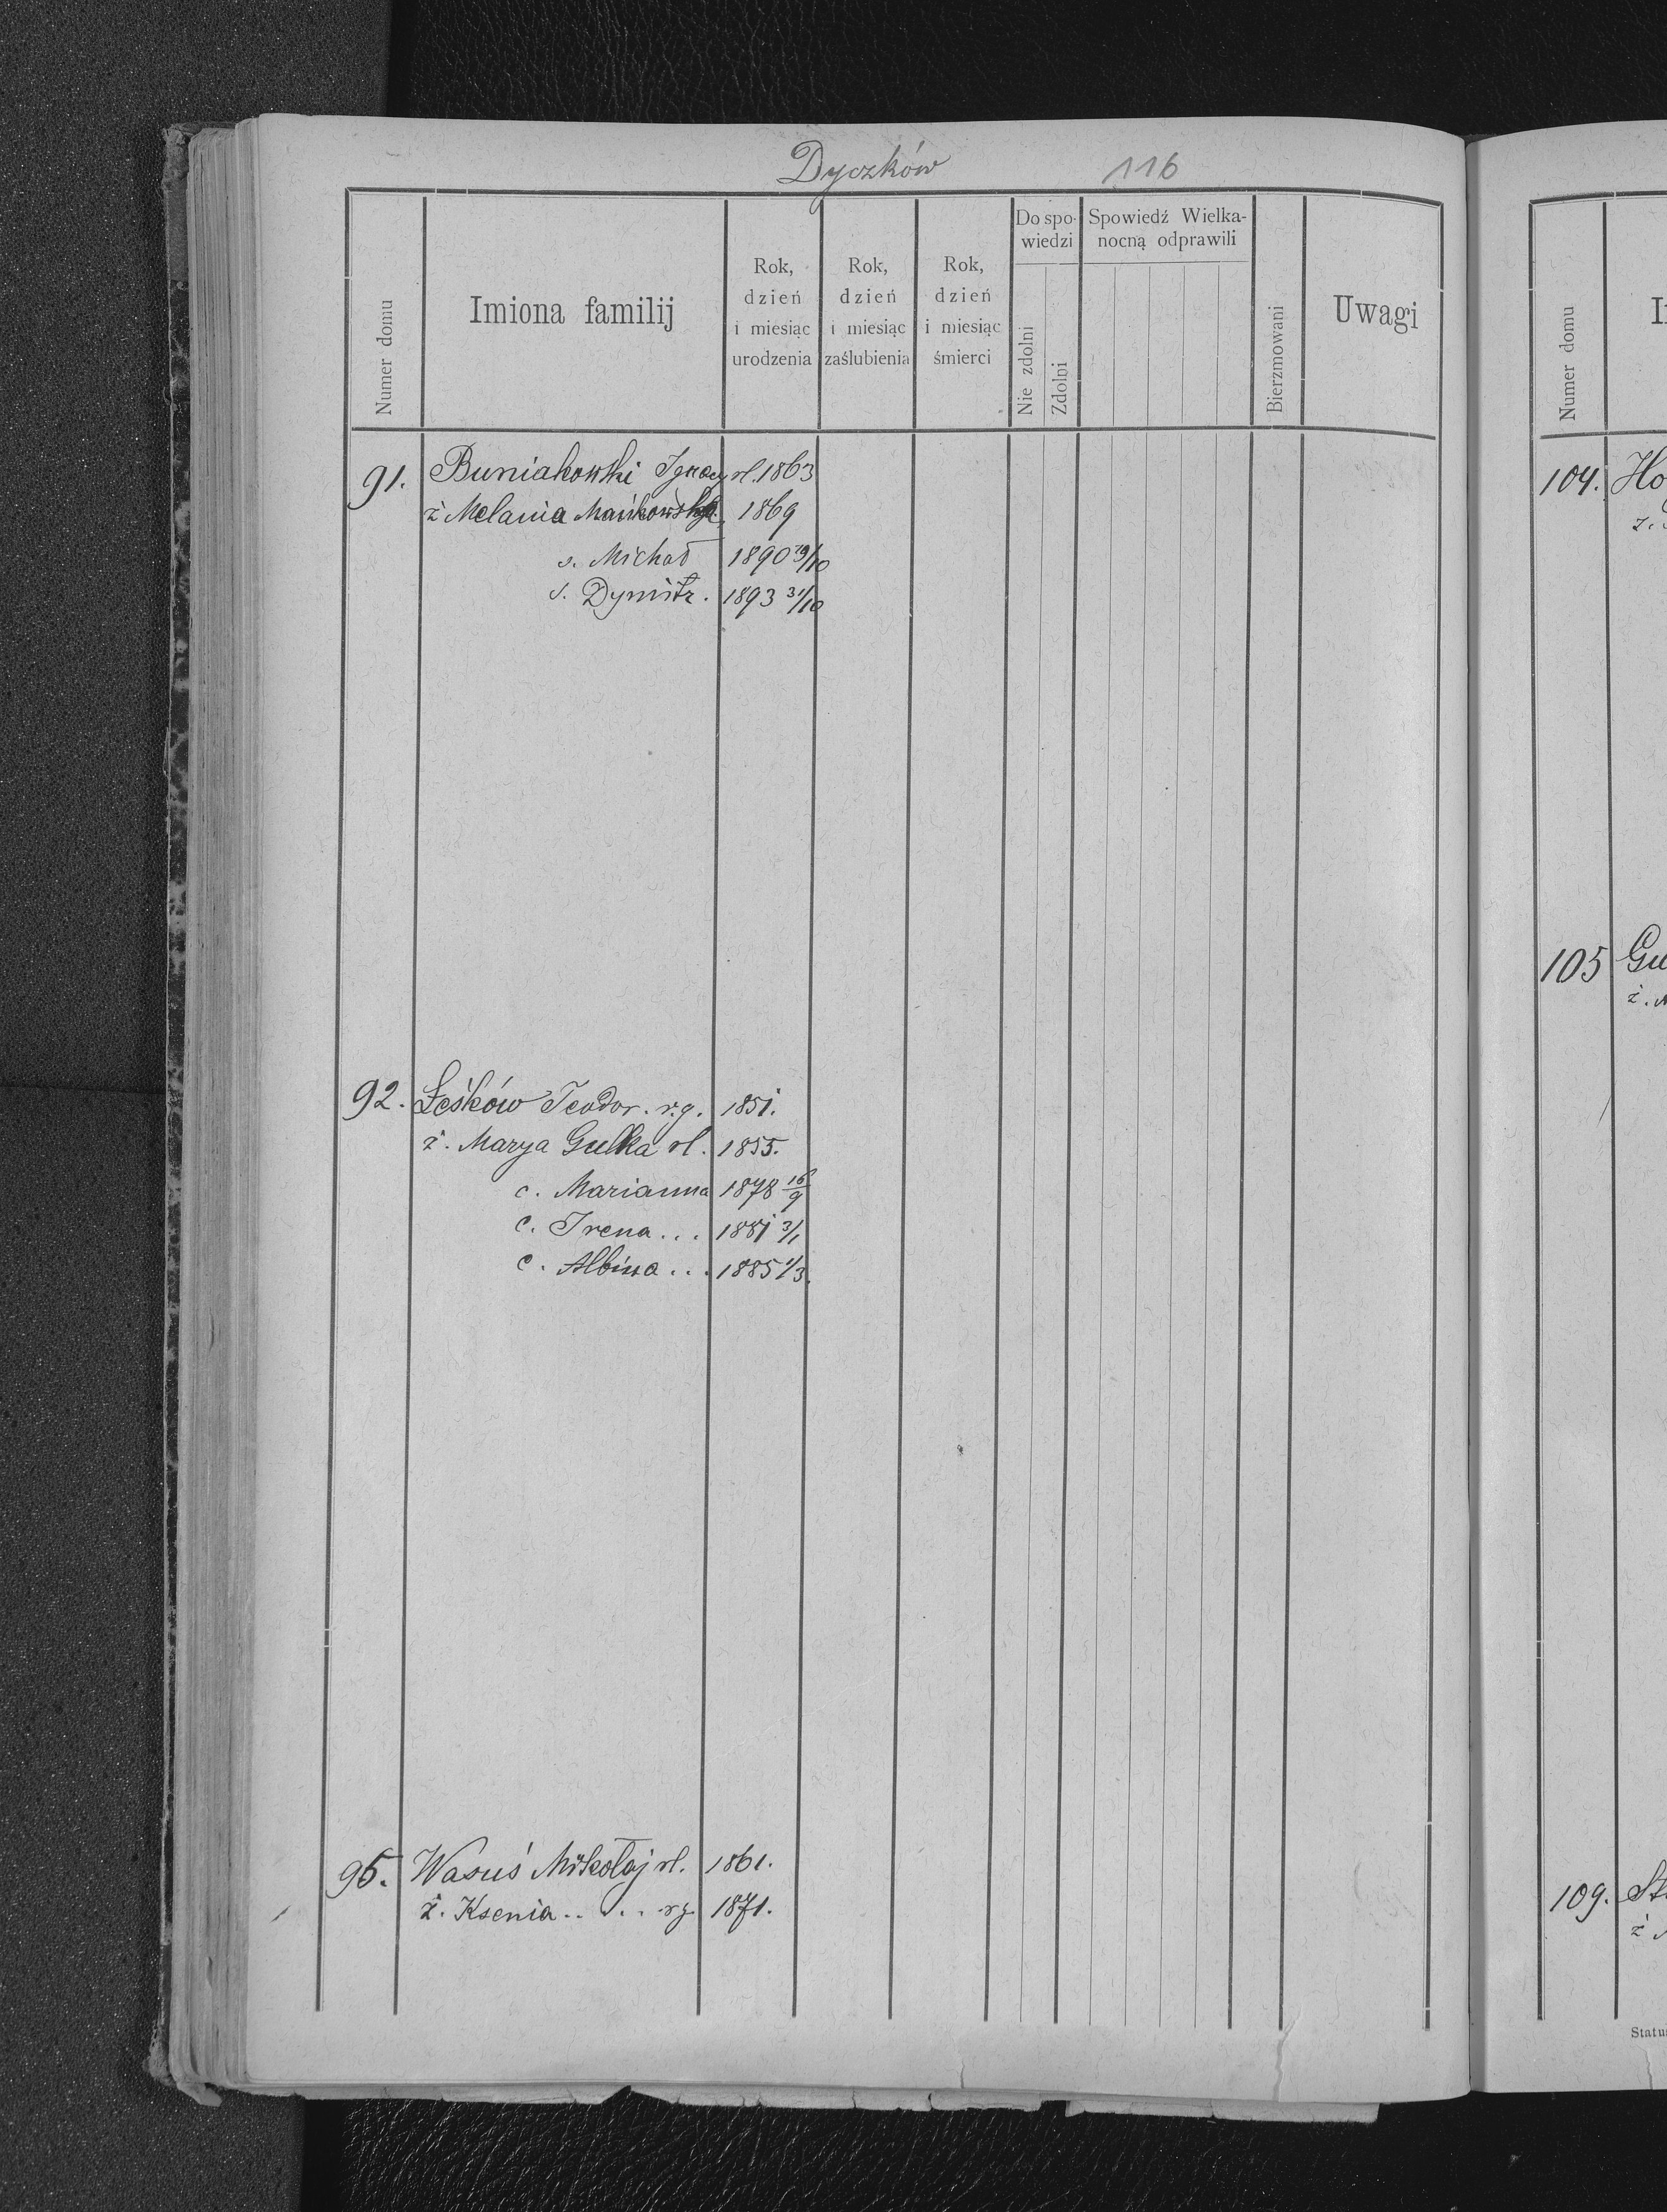 Dyczków 116
Numer domu
Imiona familij
Rok, dzień i miesiąc urodzenia
Rok, dzień i miesiąc zaślubienia
Rok, dzień i miesiąc śmierci
Do spowiedzi
Nie zdolni
Zdolni
Spowiedź Wielkanocną odprawili
Bierzmowani
Uwagi
91. Buniakowski Ignacy rl. 1863
ż Melania Mańkowska 1869
s. Michał 1890 29/10
s. Dymitr. 1893 31/10
92. Łeśków Teodor. r.g. 1851.
ż. Marya Gulka rl. 1855.
c. Marianna 1878 16/9
c. Irena... 1881 3/1
c. Albina... 1885 1/3.
95. Wasuś Mikołaj rl. 1861.
ż. Ksenia.. ... rg. 1871.
Numer domu
104. Ho
105 Gu
ż.
109. St
ż
Statu